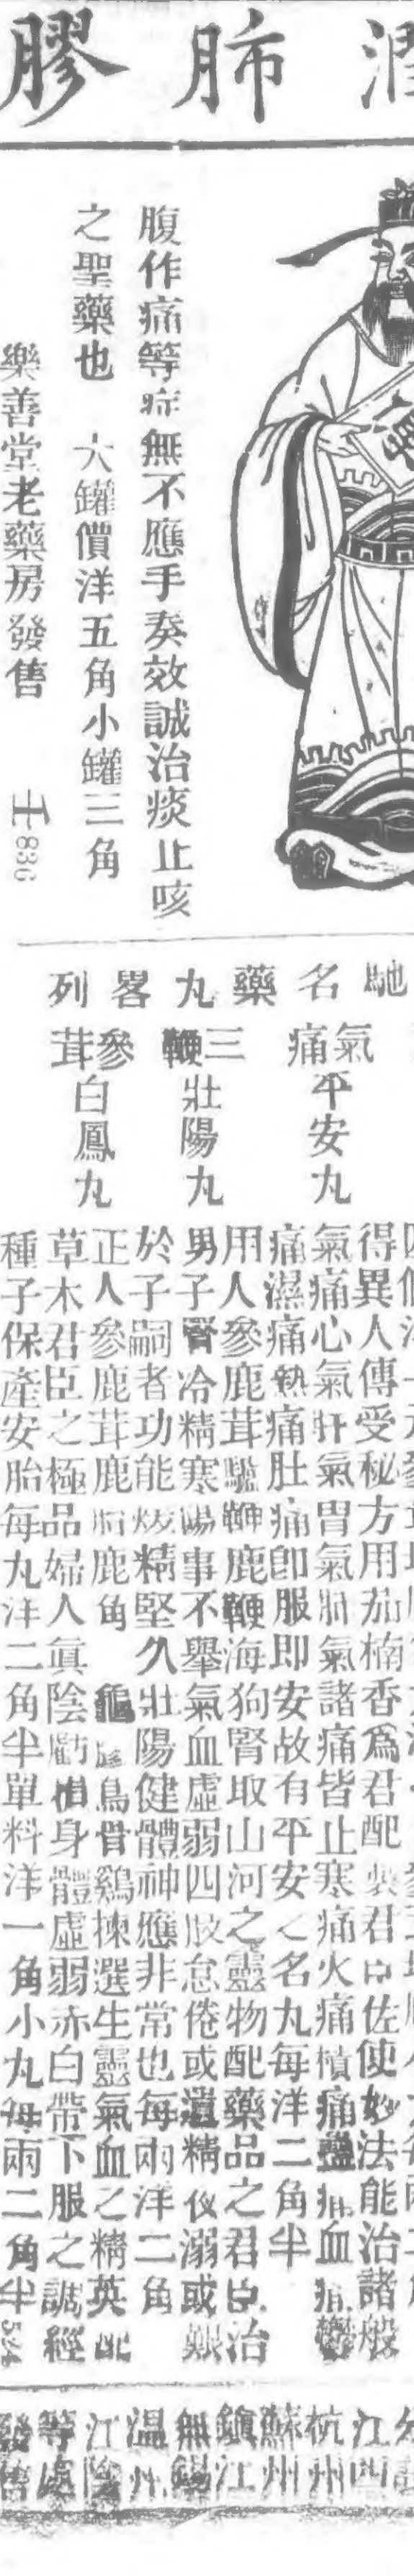 潤肺膠
腹作痛等症無不應手奏效誠治痰止咳
之聖藥也　大罐價洋五角小罐三角
樂善堂老藥房發售　王836
馳名藥丸畧列
氣痛平安丸
得異人傳受秘方用茄楠香為君配製君臣佐使妙法能治諸般
氣痛心氣肝氣胃氣肺氣諸痛皆止寒痛火痛積痛蠱痛血痛鬱
痛濕痛熱痛肚痛卽服即安故有平安之名丸每洋二角半
三鞭壯陽丸
用人參鹿茸驢鞭鹿鞭海狗腎取山河之靈物配藥品之君臣治
男子腎冷精寒陽事不舉氣血虛弱四肢怠倦或遺精夜溺或艱
於子嗣者功能煖精堅久壯陽健體神應非常也每兩洋二角
參茸白鳳丸
正人參鹿茸鹿胎鹿角龜鳥骨鷄揀選生靈氣血之精英配
草木君臣之極品婦人眞陰虧損身體虛弱赤白帶下服之調經
種子保產安胎每丸洋二角半單料洋一角小丸每兩二角半
江西
杭州
蘇州
鎮江
無錫
温州
江陰
等處
發售